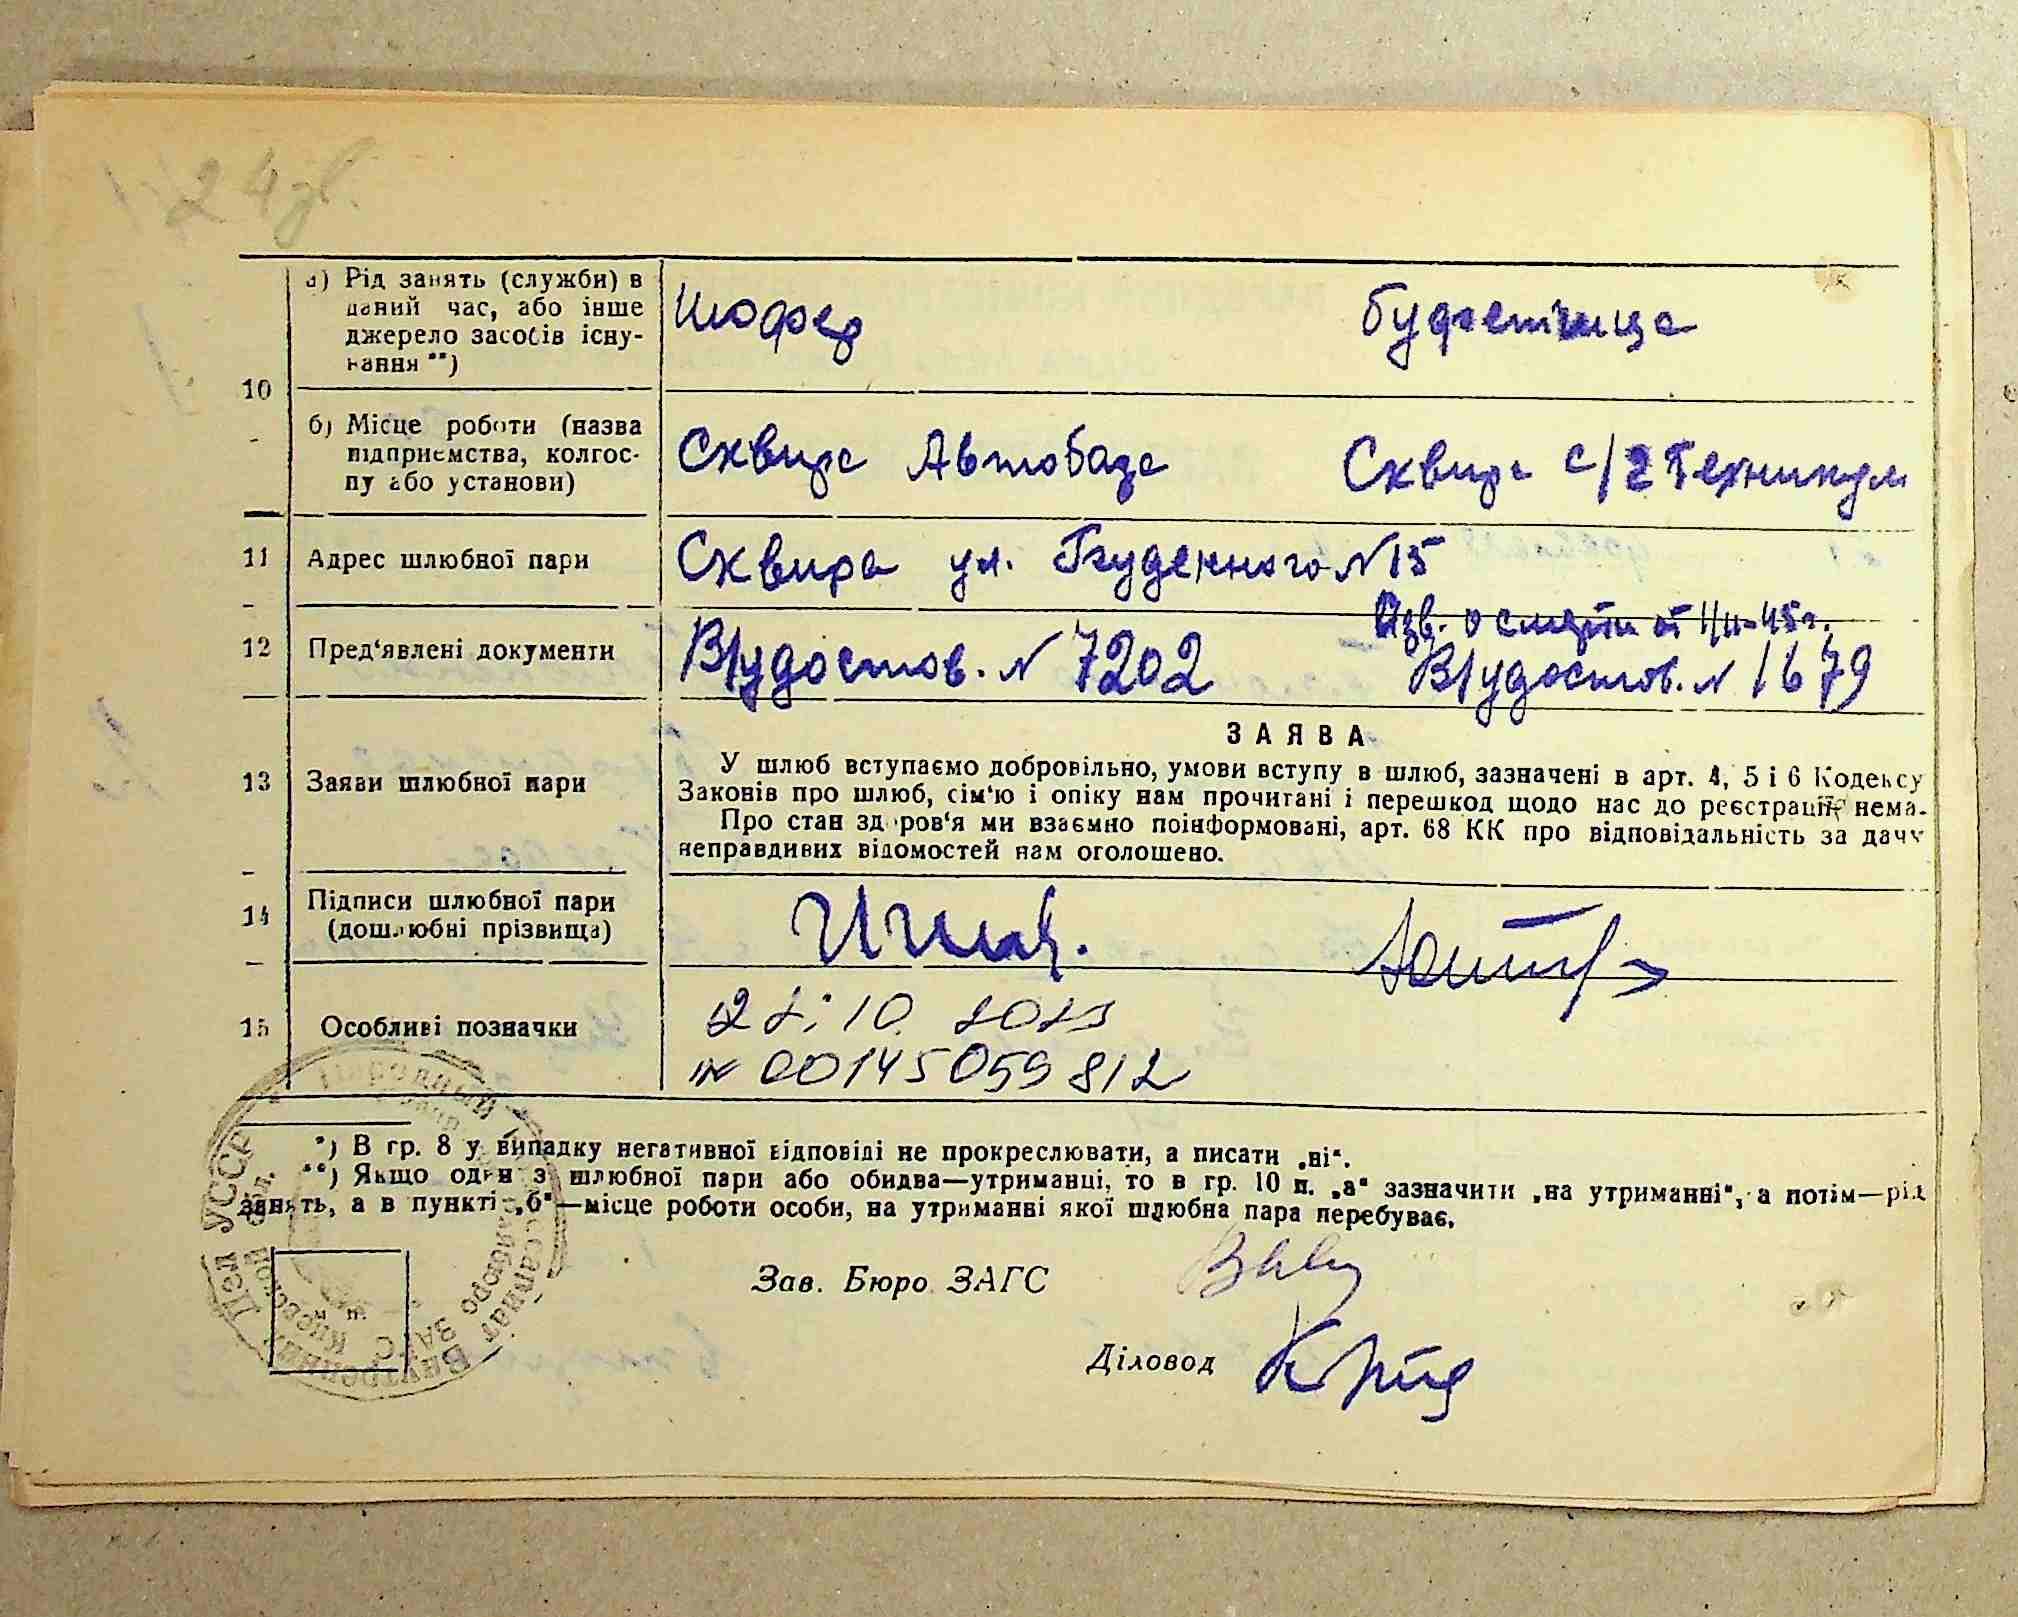 124зв.
а) Рід занять (служби) в
даний час, або інше
джерело засобів існу-
вання **)
Шофер
буфетчица
10
б) Місце роботи (назва
підприємства, колгос-
пу або установи)
Сквира Автобаза
Сквира с/г Техникум
11 Адрес шлюбної пари
Сквира ул. №15
12 Пред'явлені документи
В/удостов. № 7202
Изв. о смерти от 45 г.
В/удостов. № 1679
ЗАЯВА
13 Заяви шлюбної пари
У шлюб вступаємо добровільно, умови вступу в шлюб, зазначені в арт. 4, 5 і 6 Кодексу
Законів про шлюб, сім'ю і опіку нам прочитані і перешкод щодо нас до реєстрації нема.
Про стан здоров'я ми взаємно поінформовані, арт. 68 КК про відповідальність за дачу
неправдивих відомостей нам оголошено.
14 Підписи шлюбної пари
(дошлюбні прізвища)
15 Особливі позначки
10. 2023
№ 00145059812
*) В гр. 8 у випадку негативної відповіді не прокреслювати, а писати „ні“.
**) Якщо один з шлюбної пари або обидва—утриманці, то в гр. 10 п. „а“ зазначити „на утриманні“, а потім—рід
занять, а в пункті „б“—місце роботи особи, на утриманні якої шлюбна пара перебуває.
Зав. Бюро ЗАГС
Діловод
Народный Комиссариат Внутренних Дел УССР
Киевской обл.
ЗАГС